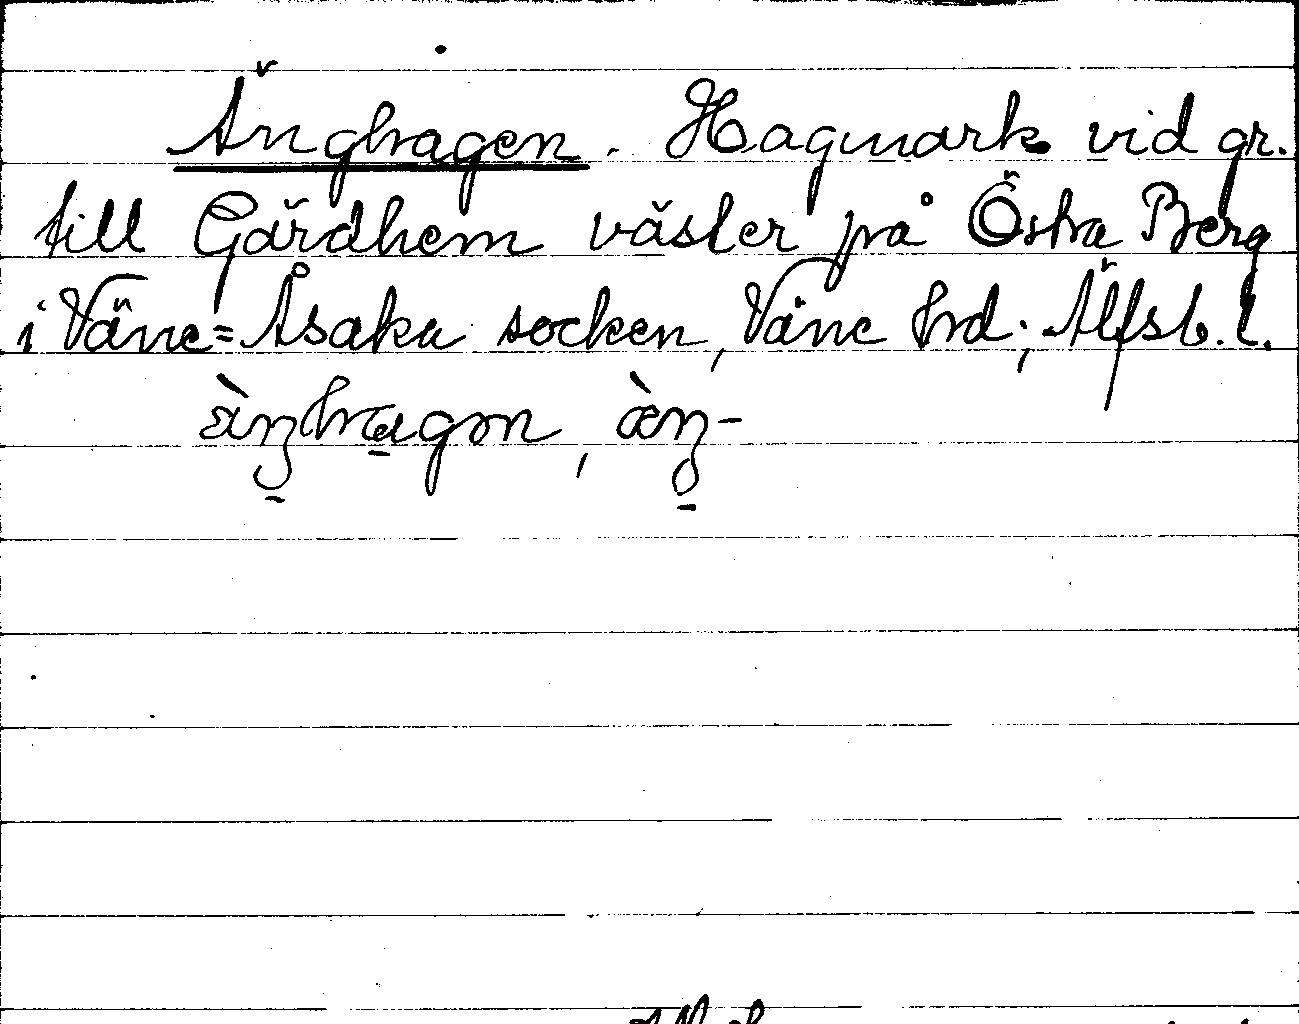 Änghagen. Hagmark vid gr.
till Gärdhem väster på Östra Berg
i Väne=Åsaka socken, Väne hrd; Älfsb. l.